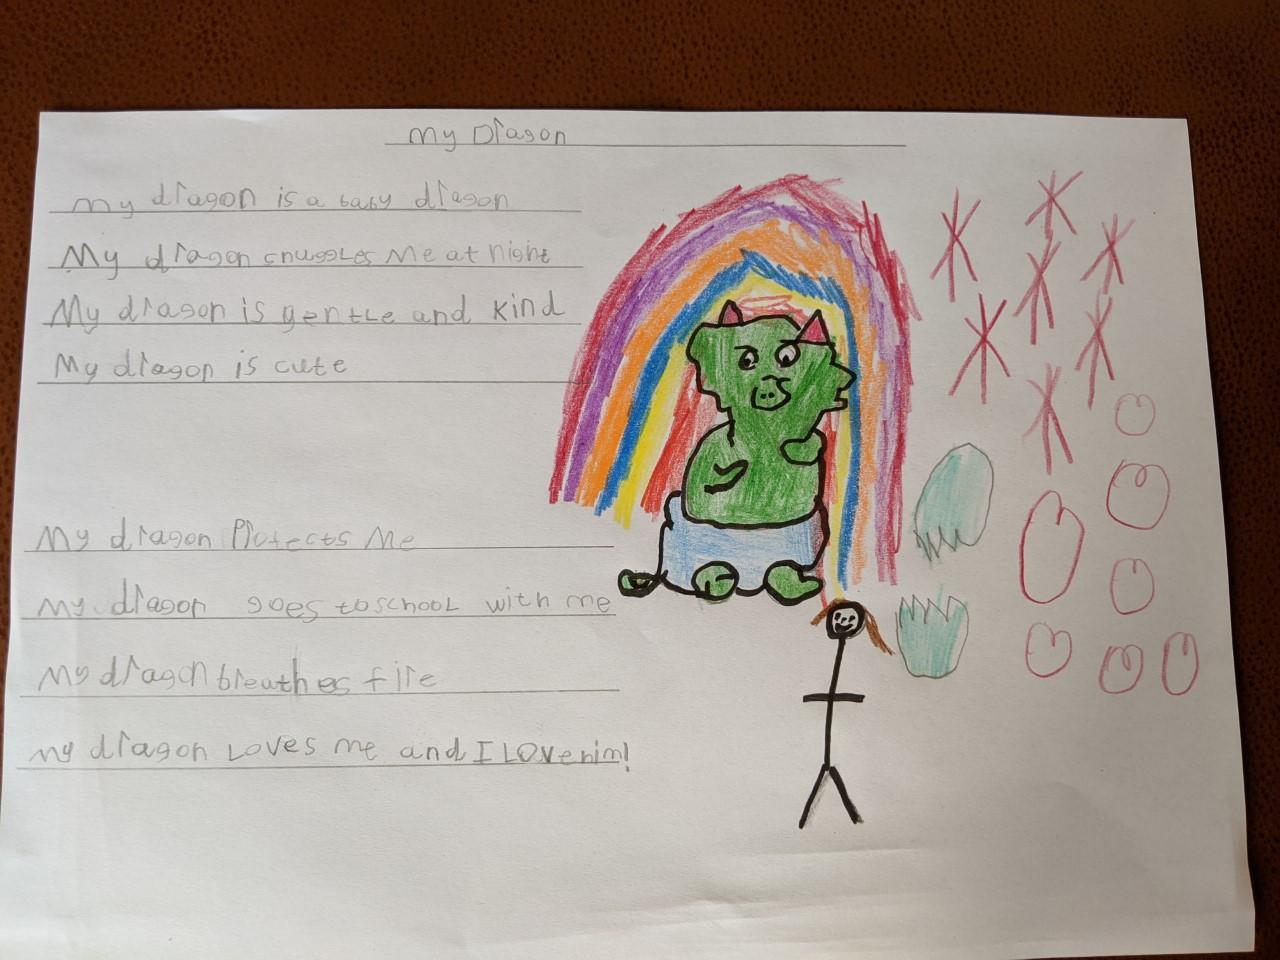 My Dragon
my dragon is a baby dragon
My dragon snuggles me at night
My dragon is gentle and kind
My dragon is cute
My dragon Protects Me
my dragon goes to school with me
My dragon breathes fire
my dragon Loves me and I Love him!